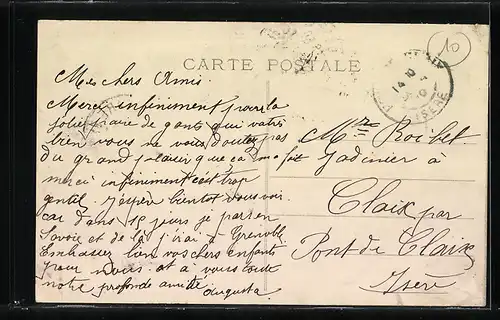 CARTE POSTALE
10
Mes chers Amis.
Merci infiniment pour la
jolie paire de gants qui
bien vous ne vous doutez pas
du grand plaisir que ca ma fait
merci infiniment c'est trop
gentil J'espère bientot vous voir
car dans 15 jours je pars en
Savoie et de là j'irai à Grenoble
Embrassez bien vos chers enfants
pour nous et a vous toute
notre profonde amitié
Augusta
Jardinier à
Claix par
Pont de Claix
Isère
ISERE